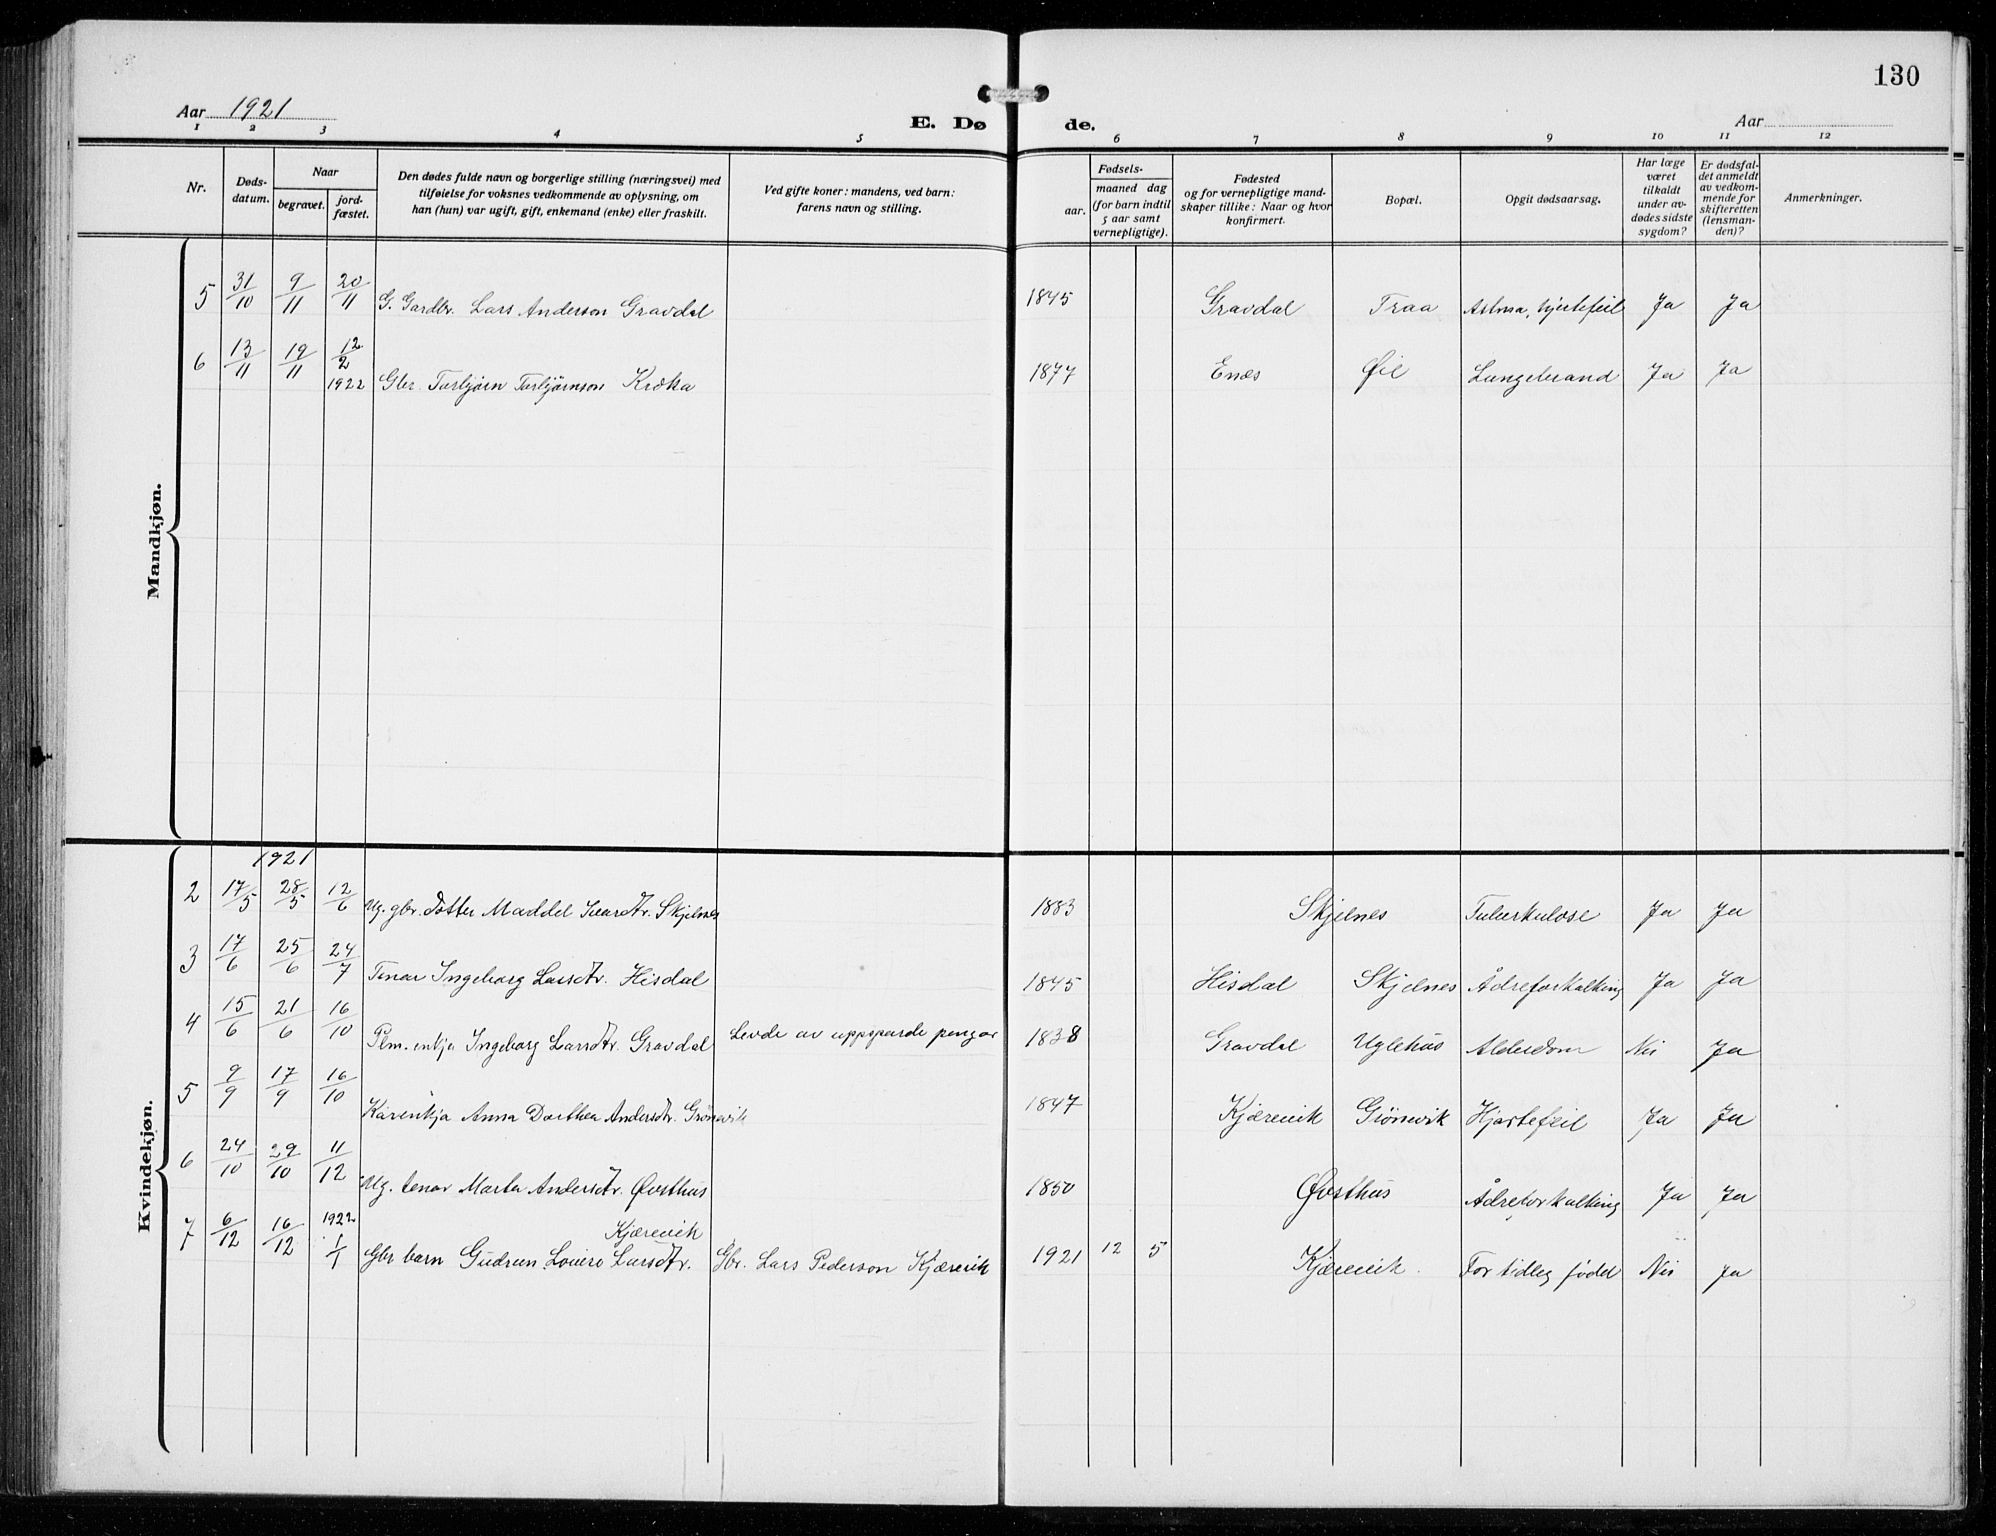 130
Aar 1921
E. Dø de.
Aar
1 2 3 4 5 6 7 8 9 10 11 12
Nr.
Døds-
datum.
Naar
begravet.
jord-
fæstet.
Den dødes fulde navn og borgerlige stilling (næringsvei) med
tilføielse for voksnes vedkommende av oplysning, om
han (hun) var ugift, gift, enkemand (enke) eller fraskilt.
Ved gifte koner: mandens, ved barn:
farens navn og stilling.
Fødsels-
aar.
maaned dag
(for barn indtil
5 aar samt
vernepligtige).
Fødested
og for vernepligtige mand-
skaper tillike: Naar og hvor
konfirmert.
Bopæl.
Opgit dødsaarsag.
Har læge
været
tilkaldt
under av-
dødes sidste
sygdom?
Er dødsfal-
det anmeldt
av vedkom-
mende for
skifteretten
(lensman-
den)?
Anmerkninger.
Mandkjøn.
5 31/10 9/11 20/11 G. Gardbr. Lars Anderson Gravdal 1845 Gravdal Traa Astma, hjertefeil Ja Ja
6 13/11 19/11 12/2 1922 Gbr. Torbjørn Torbjørnson Kræka 1877 Enæs Øie Lungebrand Ja Ja
Kvindekjøn.
1921
2 17/5 28/5 12/6 Ug. gbr. dotter Maddel Ivarsdtr. Skjelnes 1883 Skjelnes Tuberkulose Ja Ja
3 17/6 25/6 24/7 Tenar Ingeborg Larsdtr. Hisdal 1845 Hisdal Skjelnes Ådreforkalking Ja Ja
4 15/6 21/6 16/10 Plm. enkja Ingeborg Larsdtr. Gravdal Levde av uppsparde pengar 1838 Gravdal Uglehus Alderdom Nei Ja
5 9/9 17/9 16/10 Kårenkja Anna Dorthea Andersdtr. Grönnvik 1847 Kjærevik Grönnvik Hjartefeil Ja Ja
6 24/10 29/10 11/12 Ug. tenar Marta Andersdtr. Øvsthus 1850 Øvsthus Ådreforkalking Ja Ja
7 6/12 16/12 1922 1/1 Gbr barn Gudrun Lovise Larsdtr. Kjærevik Gbr. Lars Pederson Kjærevik 1921 12 5 Kjærevik. For tidleg född Nei Ja